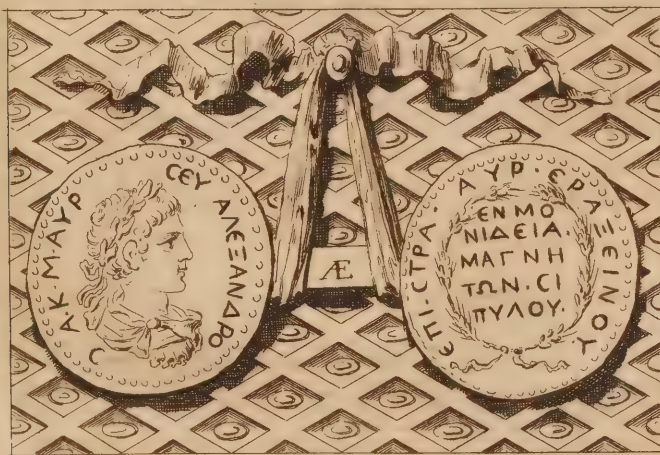 Α·Κ·Μ·ΑΥΡ ϹΕΥ ΑΛΕΞΑΝΔΡΟϹ
Æ
ΕΠΙ·ϹΤΡΑ·ΑΥΡ·ΕΡΑΞΕΙΝΟΥ
ΕΝΜΟ
ΝΙΔΕΙΑ.
ΜΑΓΝΗ
ΤΩΝ.ϹΙ
ΠΥΛΟΥ.